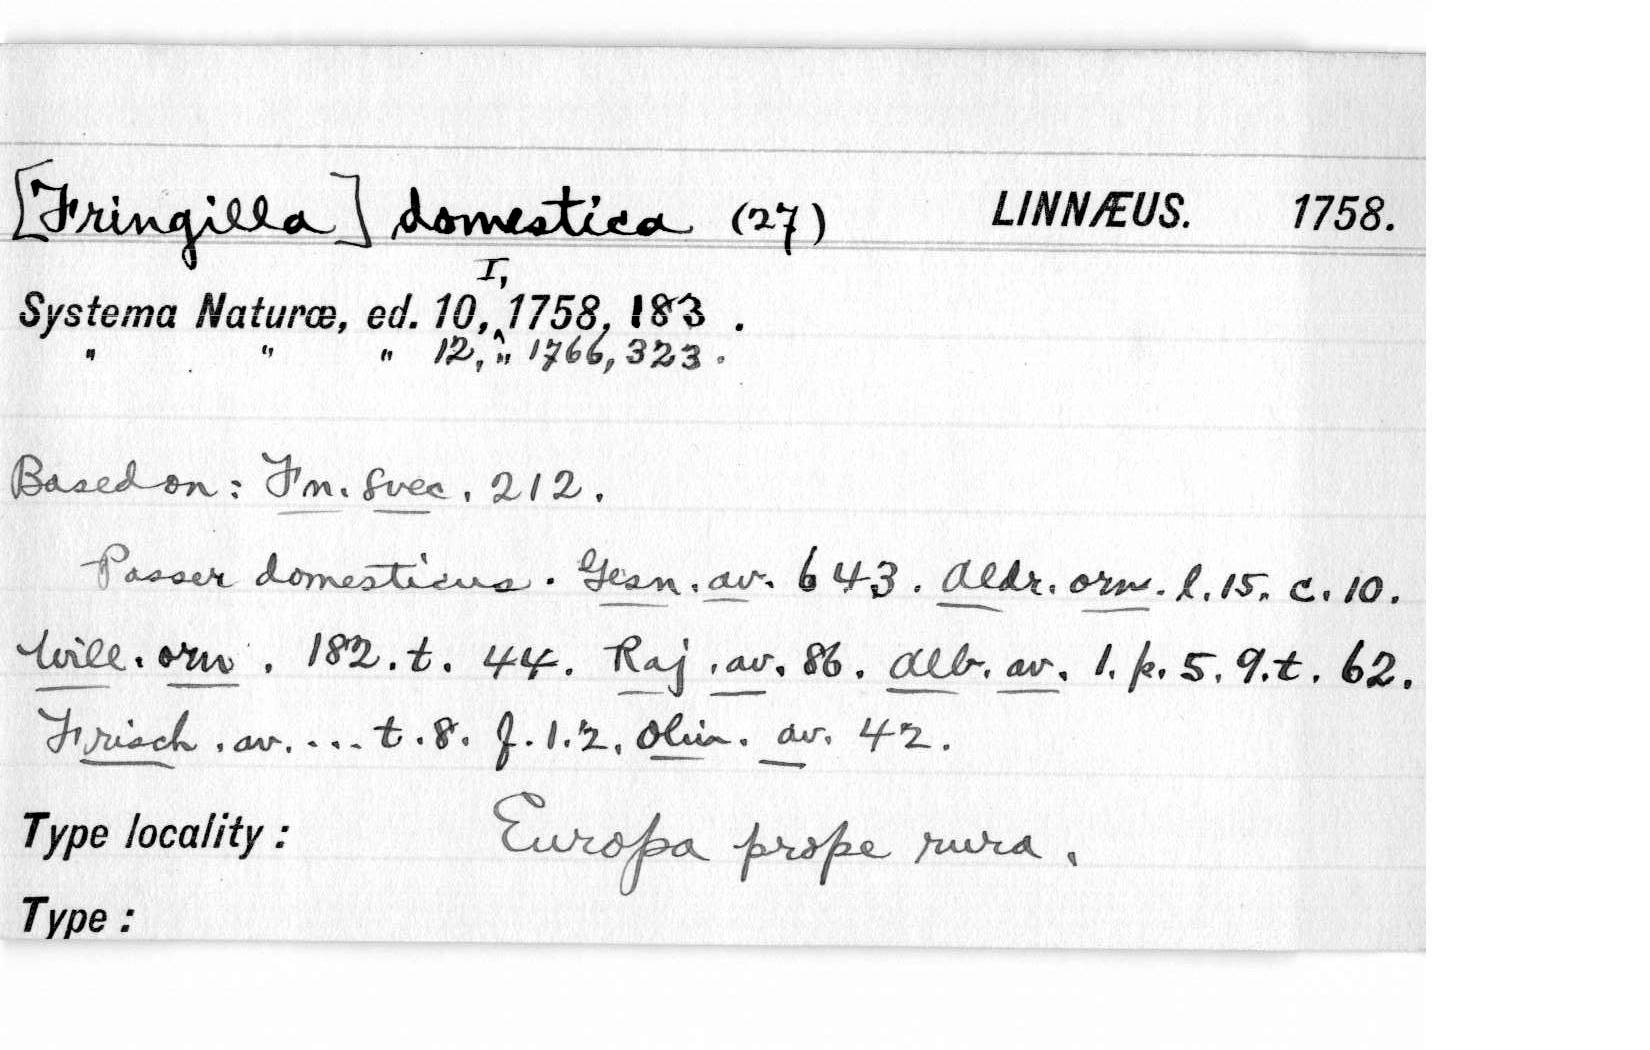 [Fringilla] domestica (27) LINNÆUS. 1758.
Systema Naturæ, ed. 10, I, 1758, 183 .
" " " 12, " 1766, 323 .
Based on : Fn. Svec. 212.
Passer domesticus . Gesn. av. 643. Aldr. orn. l. 15. c. 10.
Will. orn . 182. t. 44. Raj . av. 86. Alb. av. 1. p. 5. 9. t. 62.
Frisch . av. ... t. 8. f. 1. 2. Olin. av. 42.
Type locality : Europa prope rura .
Type :